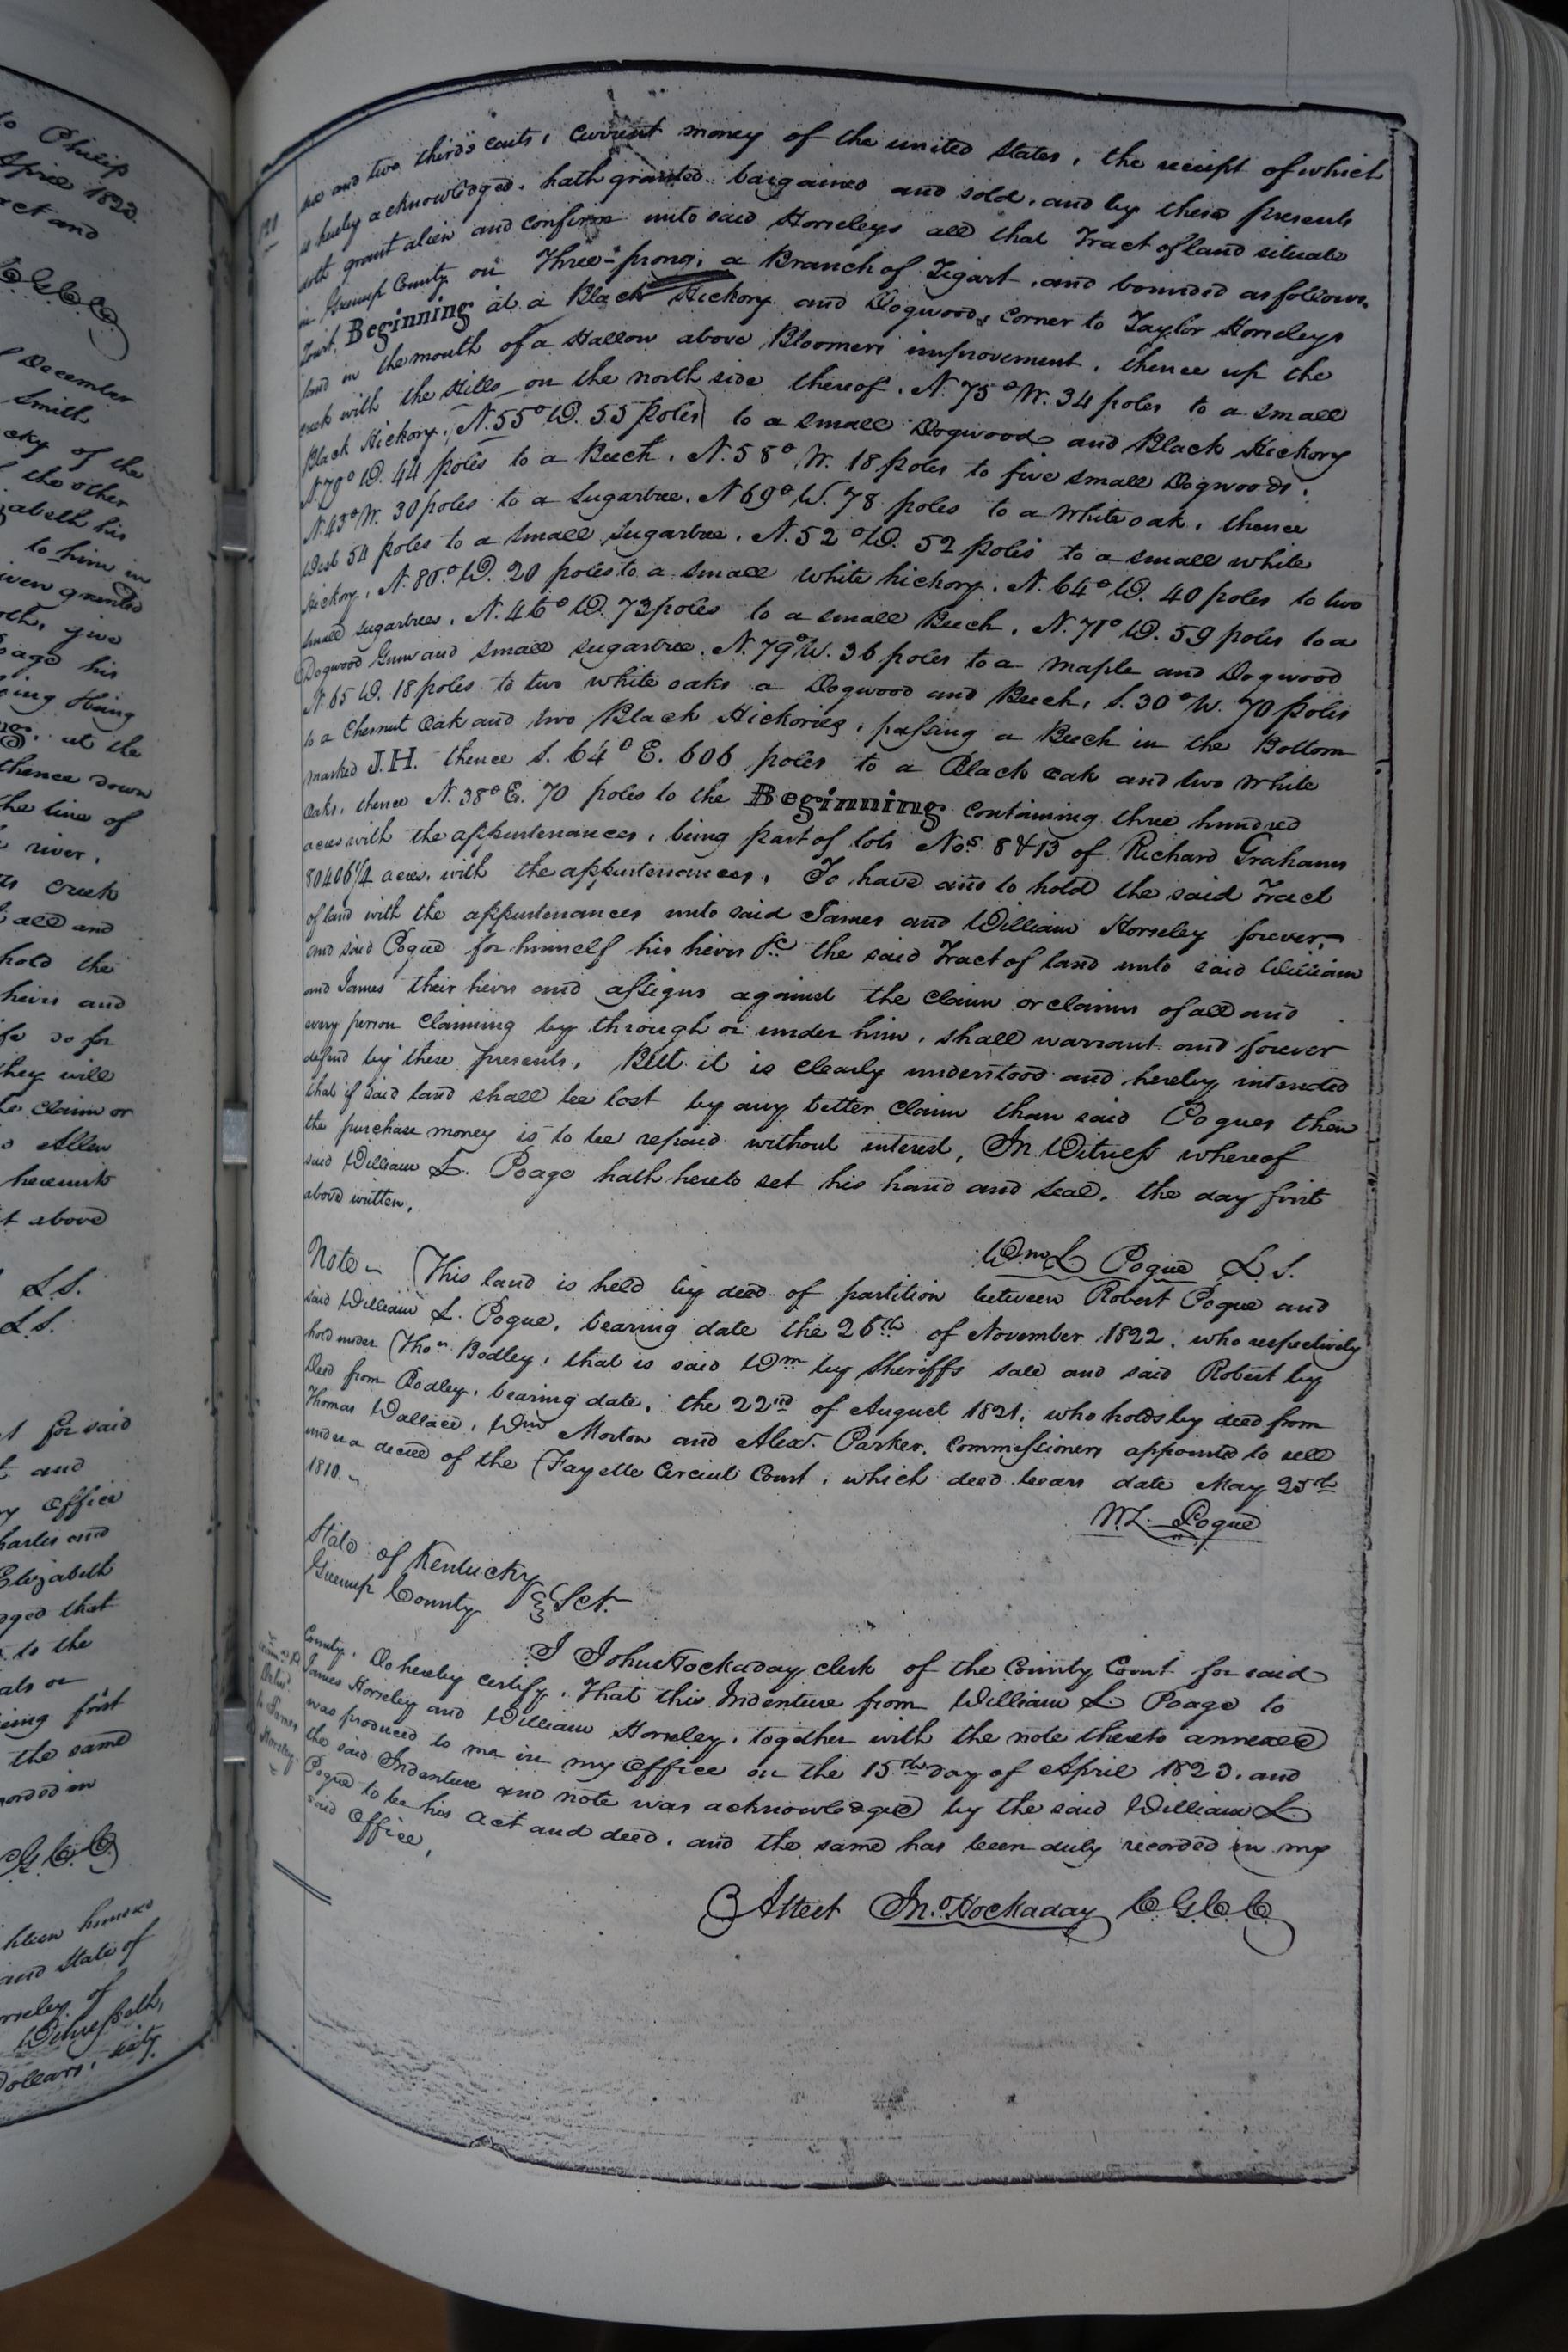 to Philip
April 1823.
act and
C. G. C. C.
December
Smith
cky of the
the other
zabeth his
to him in
iven granted
oth, give
oage his
cing thing
at the
thence down
the line of
river,
creek
all and
hold the
heirs and
do for
they will
claim or
Allen
hereunto
t above
L.S.
L.S.
for said
and
office
harles and
Elizabeth
dged that
to the
als or
eing first
the same
corded in
G. C. C.
hteen hundred
and State of
orseley of
Witnesseth,
Dollars, sixty
six and two thirds cents, current money of the united States, the receipt of which
is hereby acknowledged, hath granted bargained and sold, and by these presents
doth grant alien and confirm unto said Horseleys all that Tract of land situate
in Greenup County on Three-prong, a Branch of Tigart, and bounded as follows,
Towit, Beginning at a Black Hickory and Dogwood, corner to Taylor Horseleys
land in the mouth of a Hallow above Bloomers improvement, thence up the
creek with the Hills on the north side thereof, N. 75° W. 34 poles to a small
Black Hickory, N. 55° W. 55 poles to a small Dogwood and Black Hickory
N. 79° W. 44 poles to a Beech, N. 58° W. 18 poles to five small Dogwoods,
N. 43° W. 30 poles to a Sugartree, N 69° W. 78 poles to a White oak, thence
West 54 poles to a small sugartree, N. 52° W. 52 poles to a small white
Hickory, N. 80° W. 20 poles to a small white hickory, N. 64° W. 40 poles to two
small sugartrees, N. 46° W. 73 poles to a small Beech, N. 71° W. 59 poles to a
Dogwood Gum and small sugartree, N. 79° W. 36 poles to a maple and Dogwood
N. 65 W. 18 poles to two white oaks a Dogwood and Beech, S. 30° W. 70 poles
to a Chesnut Oak and two Black Hickories, passing a Beech in the Bottom
marked J.H. thence S. 64° E. 606 poles to a Black oak and two White
Oaks, thence N. 38° E. 70 poles to the Beginning containing three hundred
acres with the appurtenances, being part of lots Nos. 8 & 13 of Richard Grahams
80406¼ acres, with the appurtenances, To have and to hold the said Tract
of land with the appurtenances unto said James and William Horseley forever,
and said Pogue for himself his heirs &c the said Tract of land unto said William
and James their heirs and assigns against the claim or claims of all and
every person claiming by through or under him, shall warrant and forever
defend by these presents, But it is clearly understood and hereby intended
that if said land shall be lost by any better claim than said Pogues then
the purchase money is to be repaid without interest, In Witness whereof
said William L. Poage hath hereto set his hand and seal, the day first
above written.
Wm L Pogue L.S.
Note This land is held by deed of partition between Robert Pogue and
said William L. Pogue, bearing date the 26th of November 1822, who respectively
hold under Thos. Bodley, that is said Wm by Sheriffs sale and said Robert by
Deed from Bodley, bearing date, the 22nd of August 1821, who holds by deed from
Thomas Wallace, Wm Morton and Alexr. Parker, Commissioners appointed to sell
under a decree of the Fayette Circuit Court, which deed bears date May 25th
1810.
W.L. Pogue
State of Kentucky
Greenup County Sct.
I John Hockaday clerk of the County Court for said
County, Do hereby certify, That this Indenture from William L Poage to
James Horseley and William Horseley, together with the note thereto annexed
was produced to me in my office on the 15th day of April 1823, and
the said Indenture and note was acknowledged by the said William L.
Pogue to be his act and deed, and the same has been duly recorded in my
said Office,
to James
Horseley
Attest Jno. Hockaday C. G. C. C.